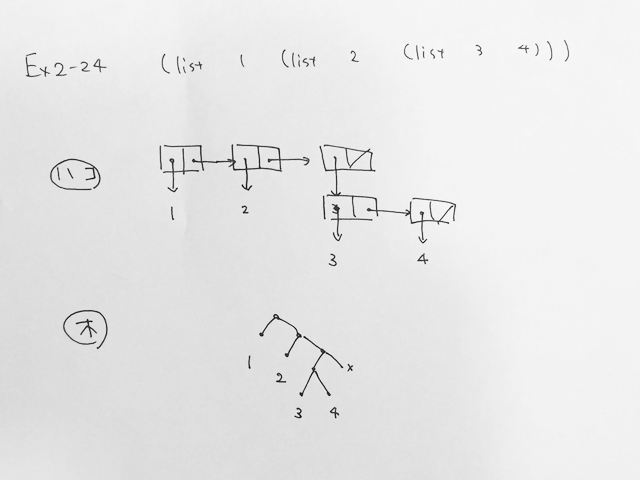 Ex2-24 (list 1 (list 2 (list 3 4)))
ハコ
1 2
3 4
木
1
2 x
3 4